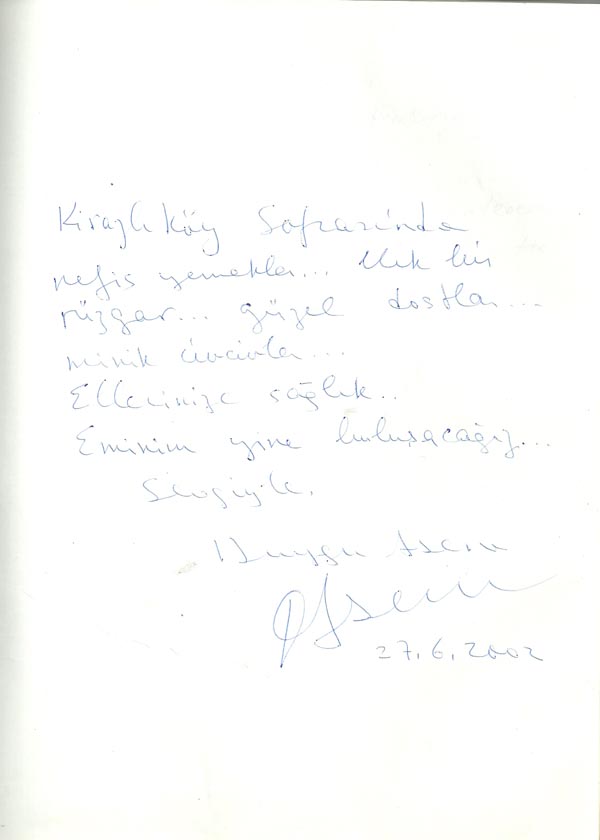 Kirazlıköy Sofrasında
nefis yemekler... Ilık bir
rüzgar... güzel dostlar...
minik civcivler...
Ellerinize sağlık..
Eminim yine buluşacağız...
Sevgiyle.
Duygu Asena
27.6.2002